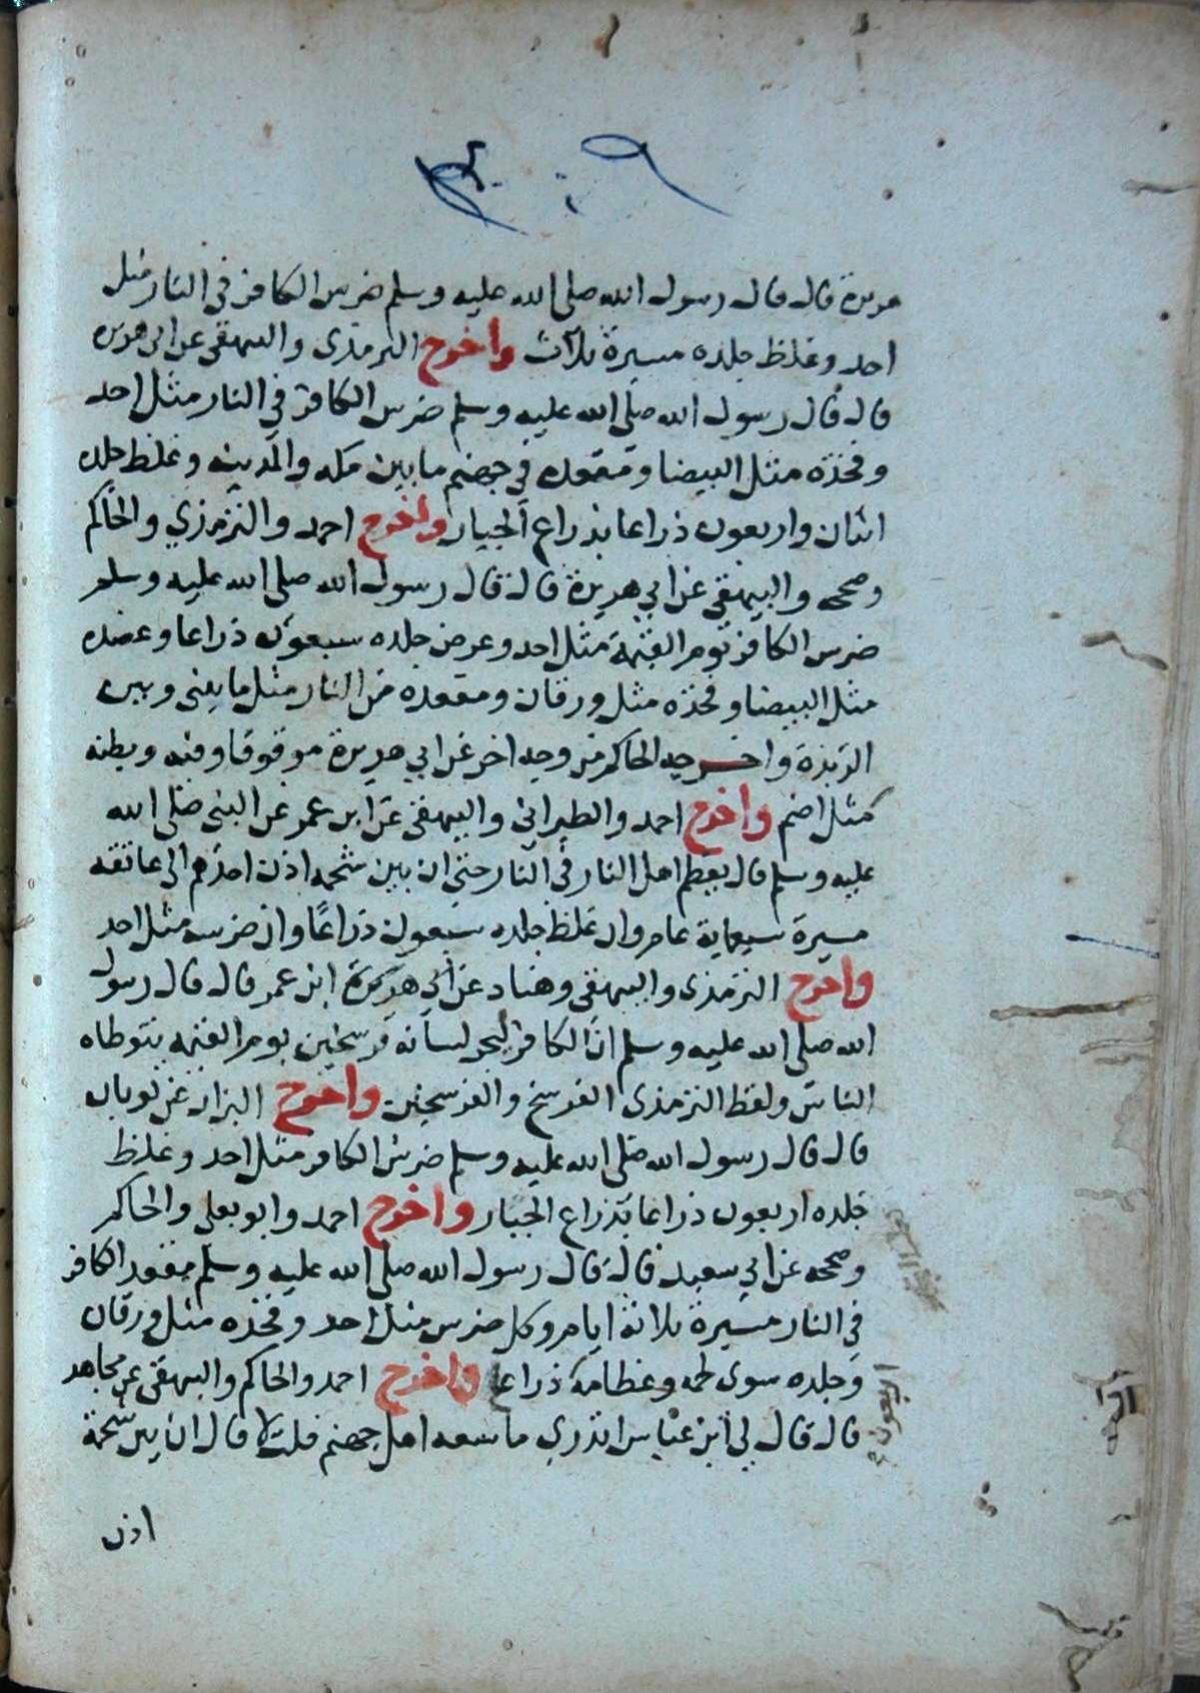 هريرة قال قال رسول الله صلى الله عليه وسلم ضرس الكافر في النار مثل
احد وغلظ جلده مسيرة ثلاث واخرج الترمذي والبيهقي عن ابي هريرة
قال قال رسول الله صلى الله عليه وسلم ضرس الكافر في النار مثل احد
وفخذه مثل البيضا ومقعده في جهنم ما بين مكه والمدينه وغلظ جلده
اثنان واربعون ذراعا بذراع الجبار واخرج احمد والترمذي والحاكم
وصححه والبيهقي عن ابي هريرة قال قال رسول الله صلى الله عليه وسلم
ضرس الكافر يوم القيمة مثل احد وعرض جلده سبعون ذراعا وعضده
مثل البيضا وفخذه مثل ورقان ومقعده من النار مثل ما بيني وبين
الربذة واخرجه الحاكم من وجه اخر عن ابي هريرة موقوفا وفيه وبطنه
مثل اضم واخرج احمد والطبراني والبيهقي عن ابن عمر عن النبي صلى الله
عليه وسلم قال يعظم اهل النار في النار حتى ان بين شحمه اذن احدهم الى عاتقه
مسيرة سبعماية عام وان غلظ جلده سبعون ذراعًا وان ضرسه مثل احد
واخرج الترمذي والبيهقي وهناد عن ابي هريرة ابن عمر قال قال رسول
الله صلى الله عليه وسلم ان الكافر ليجر لسانه فرسخين يوم القيمه يتوطاه
الناس ولفظ الترمذي الفرسخ والفرسخين واخرج البزار عن ثوبان
قال قال رسول الله صلى الله عليه وسلم ضرس الكافر مثل احد وغلظ
جلده اربعون ذراعا بذراع الجبار واخرج احمد وابو يعلى والحاكم
وصححه عن ابي سعيد قال قال رسول الله صلى الله عليه وسلم مقعد الكافر
في النار مسيرة ثلاثة ايام وكل ضرس مثل احد وفخذه مثل ورقان
وجلده سوى لحمه وعظامه ذراعا واخرج احمد والحاكم والبيهقي عن مجاهد
قال قال لي ابن عباس اتدري ما سعه اهل جهنم قلت لا قال ان بين شحمة
اذن